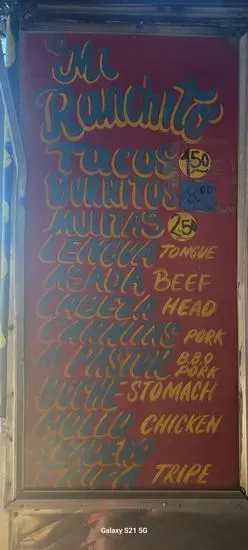 Mi
Ranchito
TACOS 1.50
BURRITOS 8.00
MULITAS 2.50
LENGUA TONGUE
ASADA BEEF
CABEZA HEAD
CARNITAS PORK
AL PASTOR B.B.Q PORK
BUCHE-STOMACH
POLLO CHICKEN
TRIPA TRIPE
Galaxy S21 5G